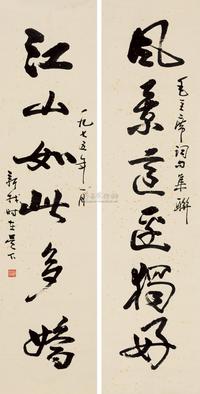 风景这边独好
毛主席词句集联
江山如此多娇
一九七五年一月